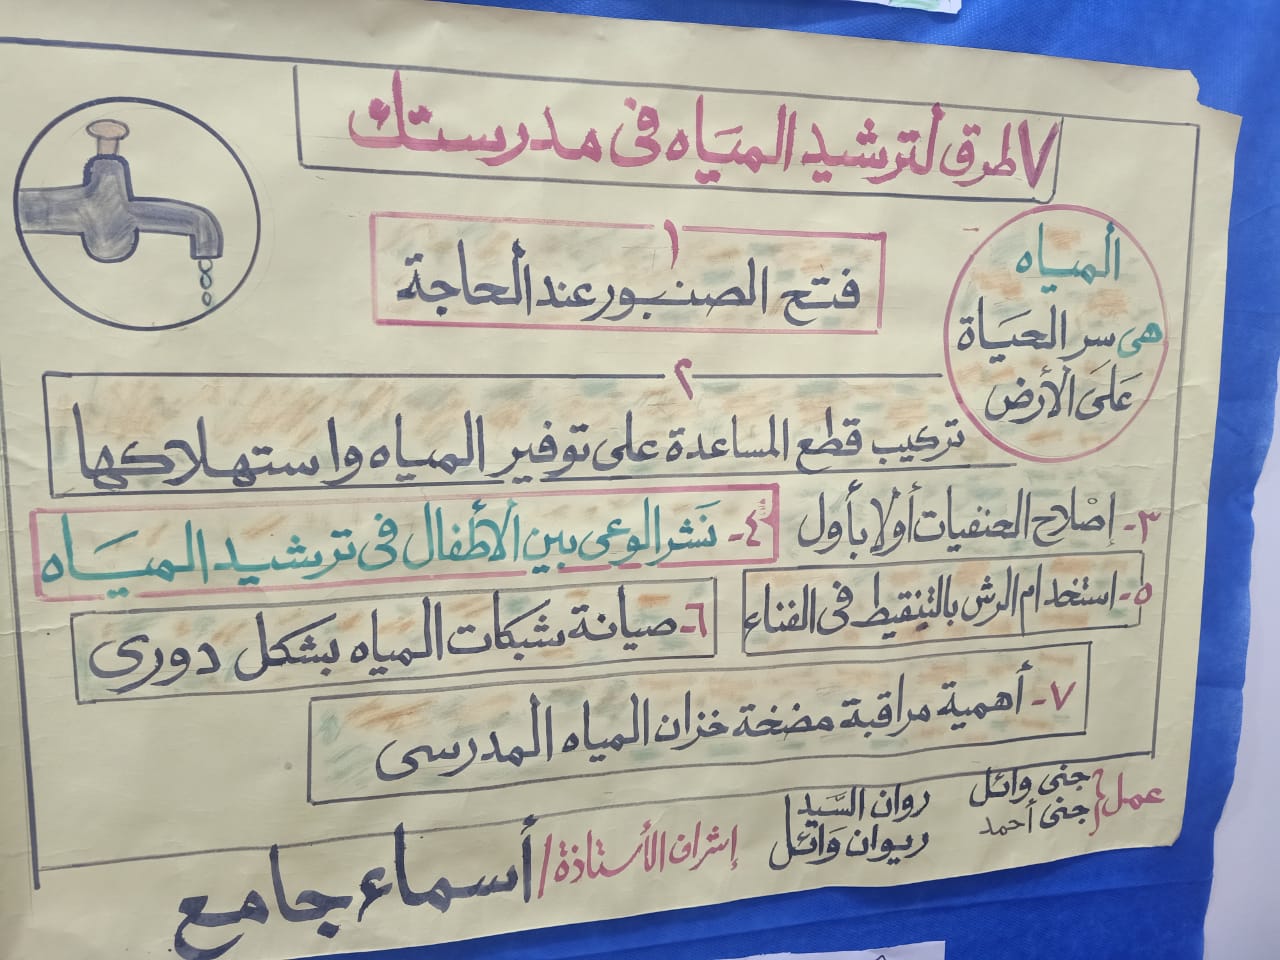 ٧ طرق لترشيد المياه فى مدرستك
المياه
هى سر الحياة
عَلَى الأرض
١
فتح الصنبور عند الحاجة
٢
تركيب قطع المساعدة على توفير المياه واستهلاكها
٣- إصْلاح الحنفيات أولا بأول
٤- نَشر الوعى بين الأطفال فى ترشيد الميَاه
٥- استخدام الرش بالتنقيط فى الفناء
٦- صيانة شبكات المياه بشكل دورى
٧- أهمية مراقبة مضخة خزان المياه المدرسى
عمل
جنى وائل
جنى أحمد
روان السَّيد
ريوان وَائل
إشراف الأستاذة/ أسماء جامع